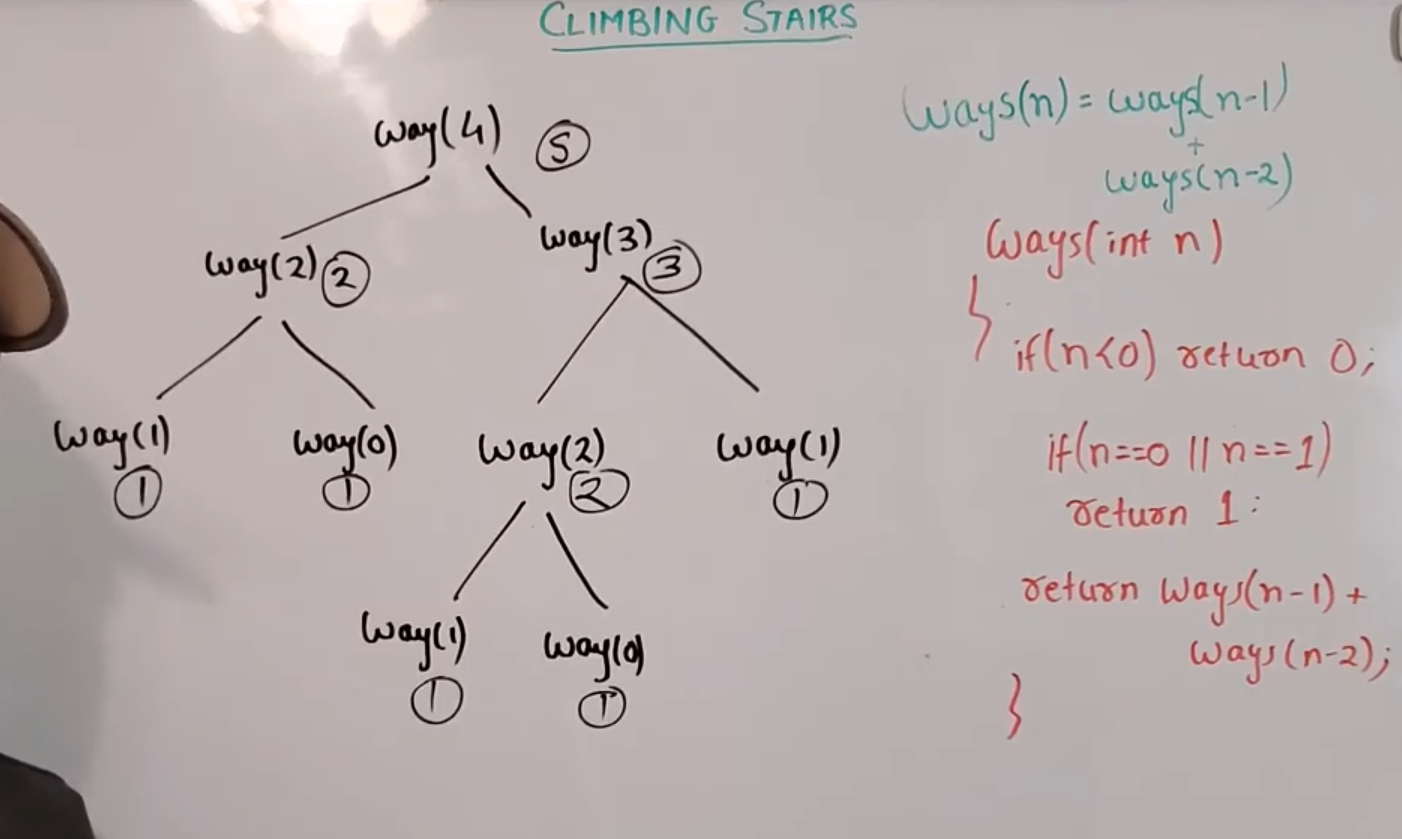 CLIMBING STAIRS
way(4) 5
way(2) 2
way(3) 3
way(1)
1
way(0)
1
way(2)
2
way(1)
1
way(1)
1
way(0)
1
ways(n) = ways(n-1)
+
ways(n-2)
ways(int n)
{
if(n<0) return 0;
if(n==0 || n==1)
return 1:
return ways(n-1) +
ways(n-2);
}